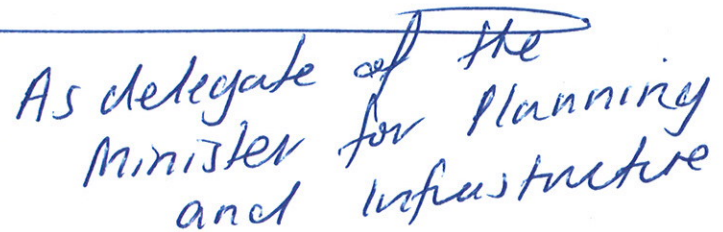 As delegate of the
Minister for Planning
and Infrastructure